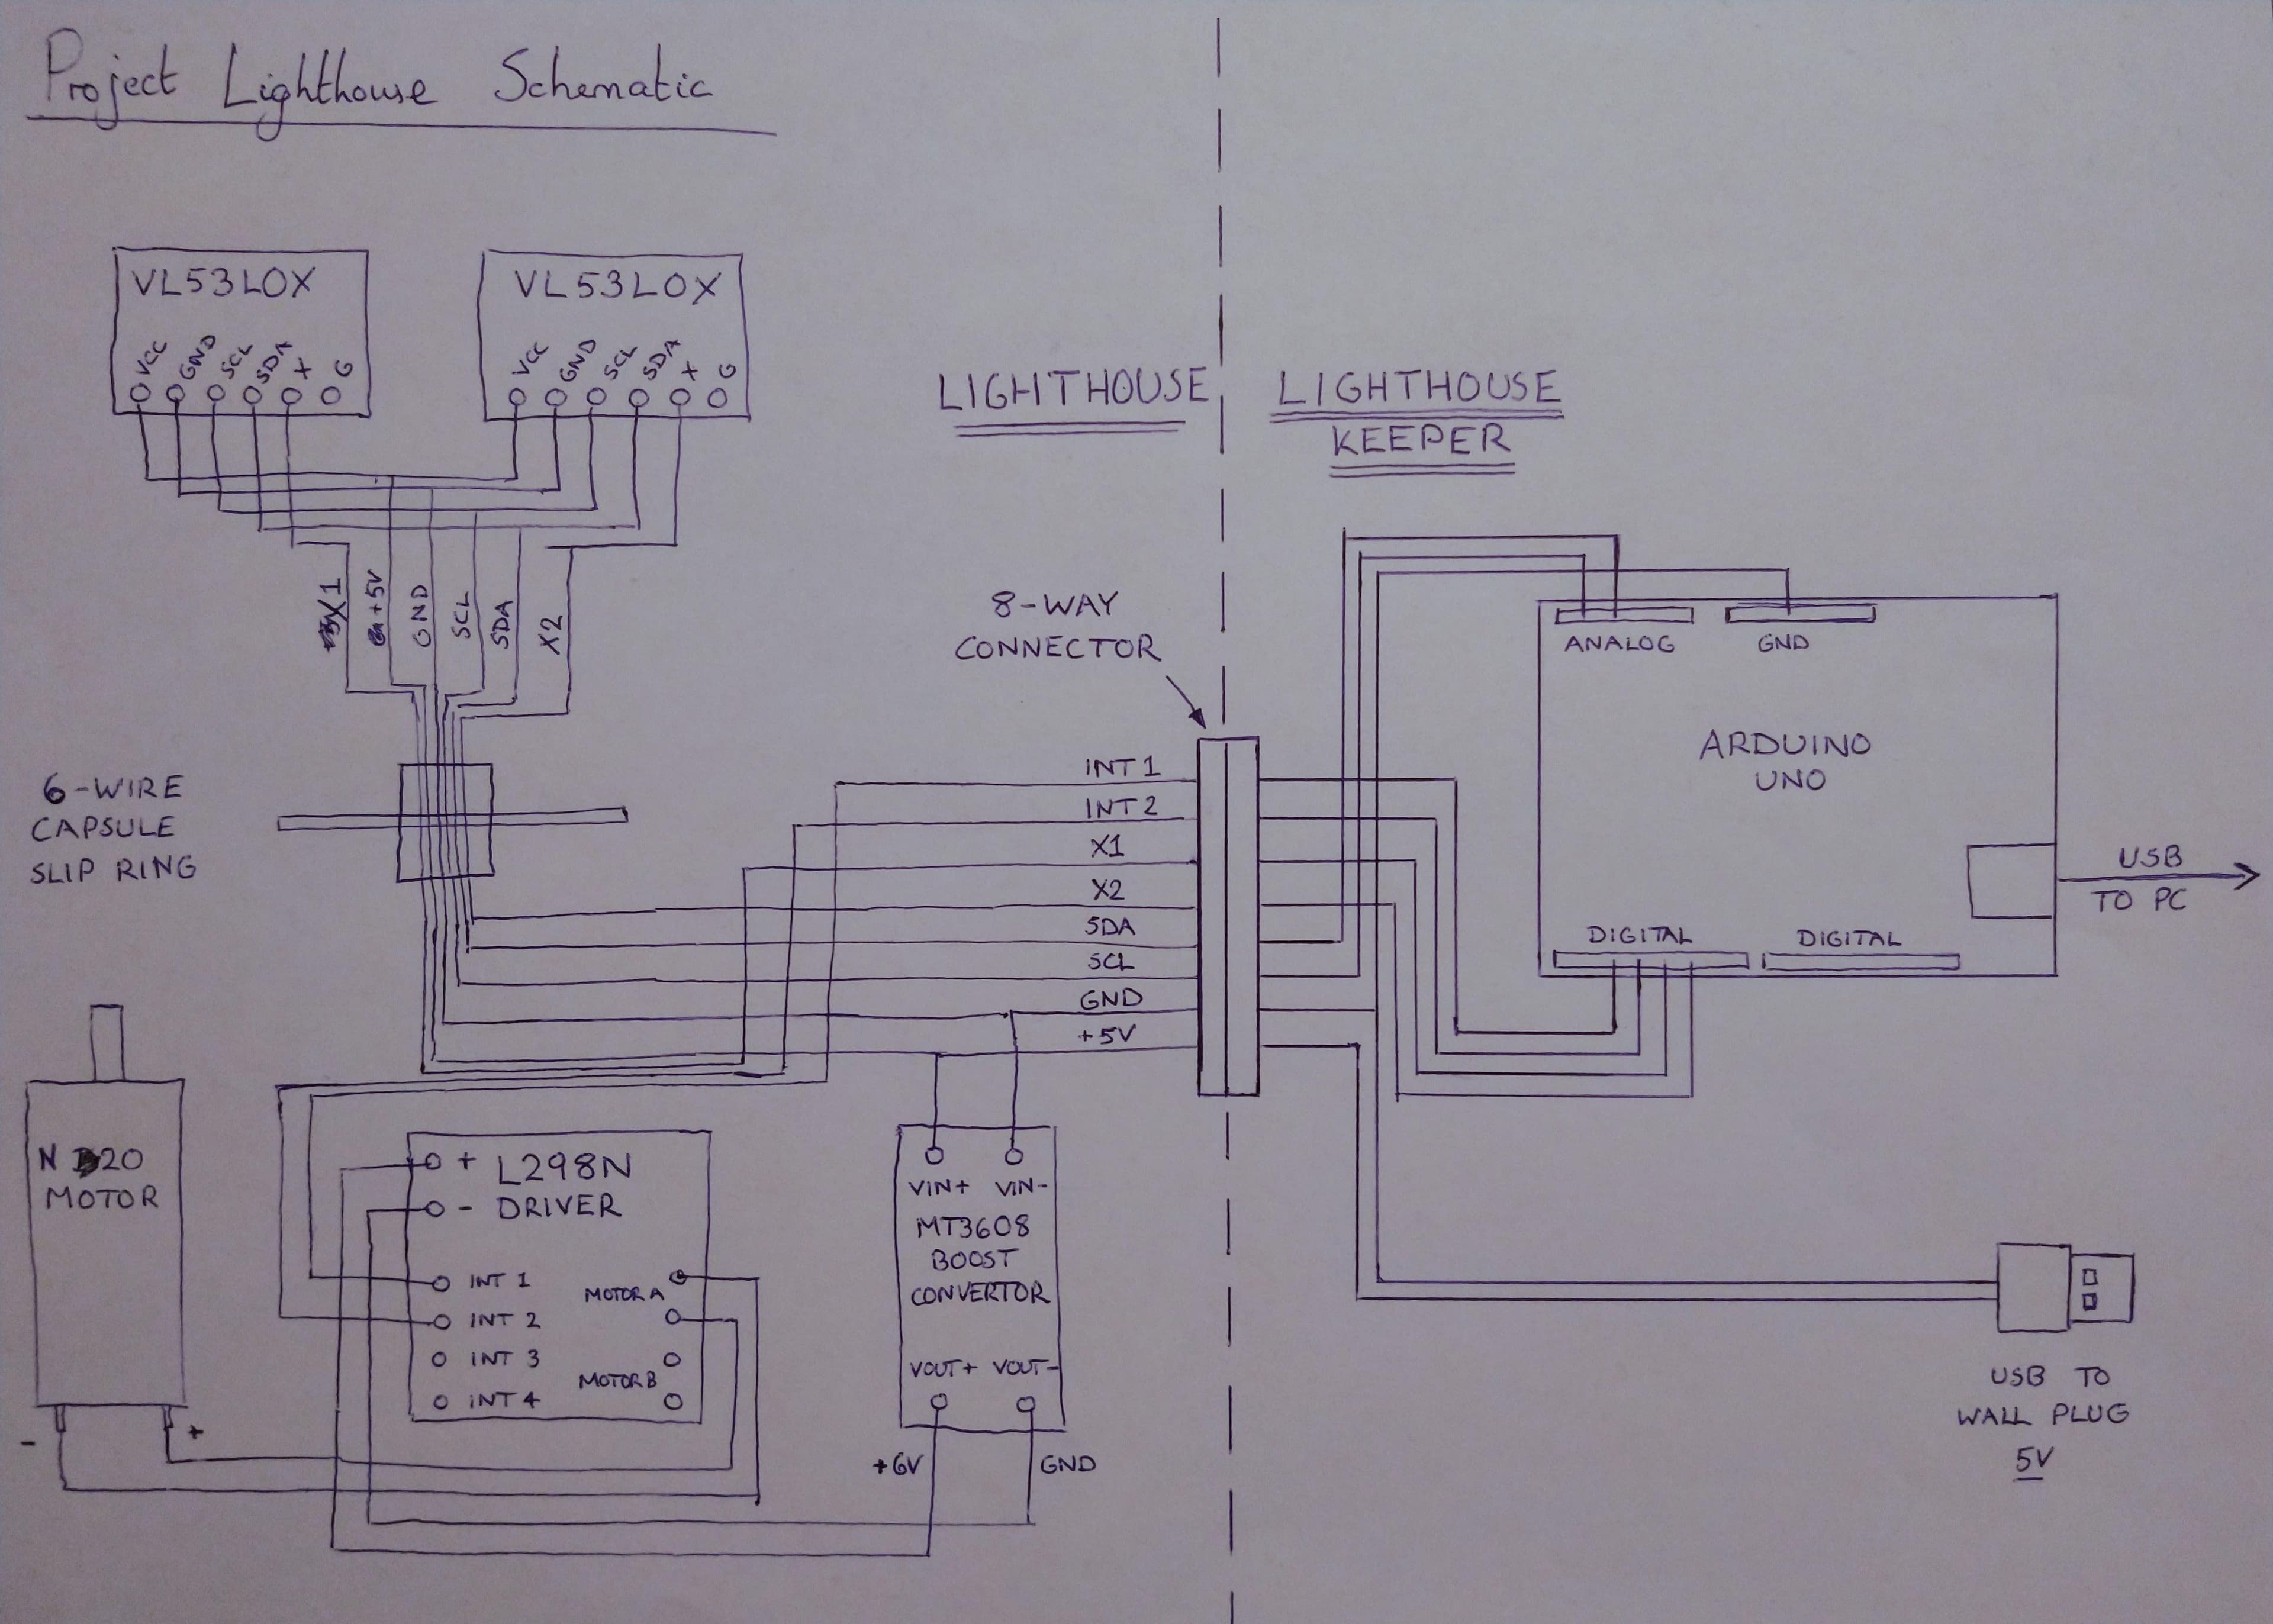 Project Lighthouse Schematic
VL53L0X
VCC GND SCL SDA X G
VL53L0X
VCC GND SCL SDA X G
X1
+5V
GND
SCL
SDA
X2
6-WIRE
CAPSULE
SLIP RING
LIGHTHOUSE
LIGHTHOUSE
KEEPER
8-WAY
CONNECTOR
INT 1
INT 2
X1
X2
SDA
SCL
GND
+5V
ANALOG
GND
ARDUINO
UNO
DIGITAL
DIGITAL
USB
TO PC
N 20
MOTOR
-
+
+ L298N
- DRIVER
INT 1
INT 2
INT 3
INT 4
MOTOR A
MOTOR B
VIN+ VIN-
MT3608
BOOST
CONVERTOR
VOUT+ VOUT-
+6V
GND
USB TO
WALL PLUG
5V